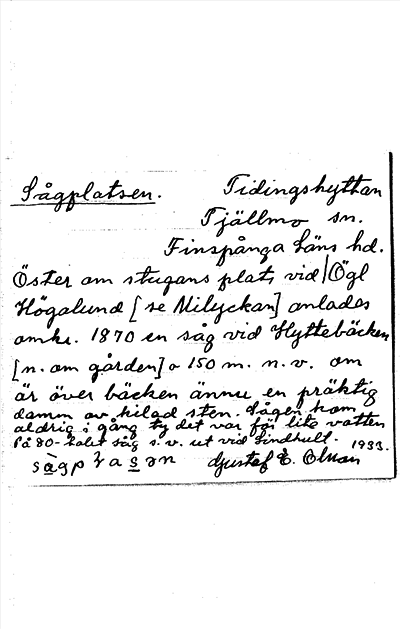 Sågplatsen. Tidingshyttan
Tjällmo sn.
Finspånga läns hd.
Öster om stugans plats vid Ögl
Högalund [se Milyckan] anlades
omkr. 1870 en såg vid Hyttebäcken
[n. om gården] o 150 m. n. v. om
är över bäcken ännu en präktig
damm av kilad sten. Sågen kom
aldrig i gång ty det var för lite vatten
På 80-talet såg s. v. ut vid Lindhult.
1933.
Gustaf E.